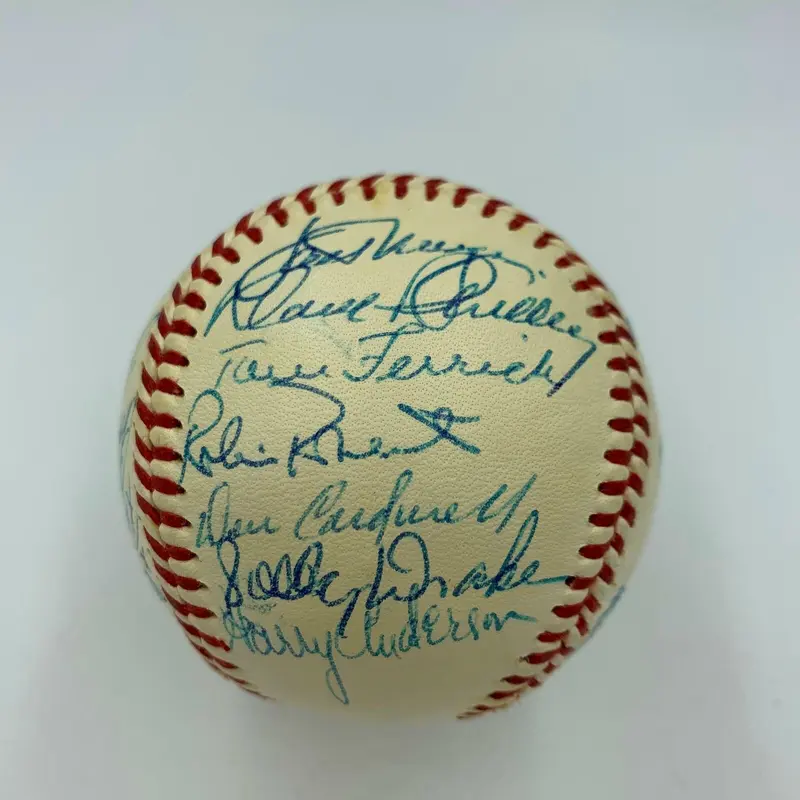 Dave Philley
Tom Ferrick
Robin Roberts
Don Cardwell
Solly Drake
Harry Anderson